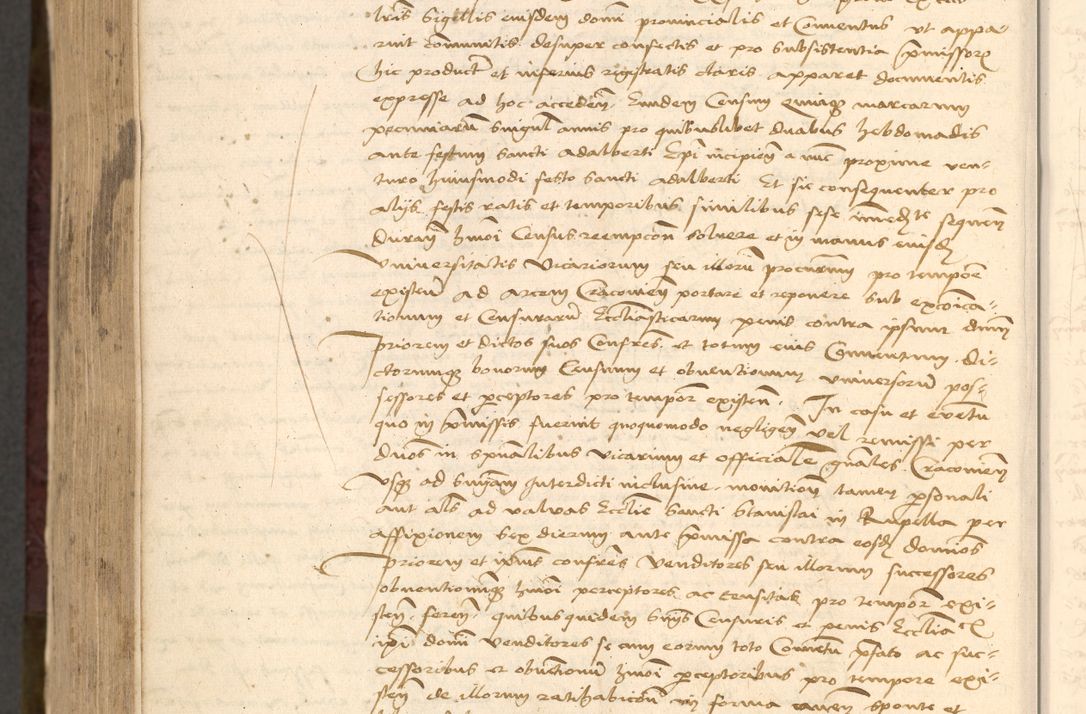 lris Sigillis eiusdem domini provincialis et Conventus ut appa-
ruit communitis desuper confectis et pro subsistentia pmissorum
hic product et inferius registratis claris apparet documentis
expresse ad hoc acceden. Eundem Censum quinque marcarum
pecuniarum singul annis pro quibuslibet duabus hebdomadis
ante festum Sancti Adalberti Epi incipien a nunc proxime ven-
turo huiusmodi festo Sancti Adalberti Et sic consequenter pro
alijs festis ratis et temporibus similibus sese immedte sequen
duran hmoi Census reempcon solvere et in manus eiusd
Universitatis Vicariorum seu illorum procuratorum pro tempore
existen ad arcem Cracovien portare et reponere sub excoica-
tionum et Censurarum Ecclesiasticarum penis contra ipsum dnum
Priorem et dictos suos Confres et totum eius Conventum di-
ctorumque bonorum Censuum et obventionum universorum pos-
sessores et perceptores pro tempore existen. In casu et eventu
quo in pmissis fuerint quoquomodo negligen vel remissi per
dnos in spualibus vicarium et officialem gnales Cracovien
usque ad summam Interdicti inclusive monition tamen personali
aut als ad valvas Ecclie Sancti Stanislai in Rupella per
affixionem sex dierum ante pmissa contra eosd dominos
Priorem et ipsius confres Venditores seu illorum successores
obventionumque hmoi perceptores ac censitas pro tempore exi-
sten feren. quibusquidem summis Censuris et penis Ecclia
ipi domini venditores se cum eorum toto Conventu pfato ac suc-
cessoribus et obventionum hmoi perceptoribus pro tempore exi-
sten de illorum ratihabicone in forma camen sponte et